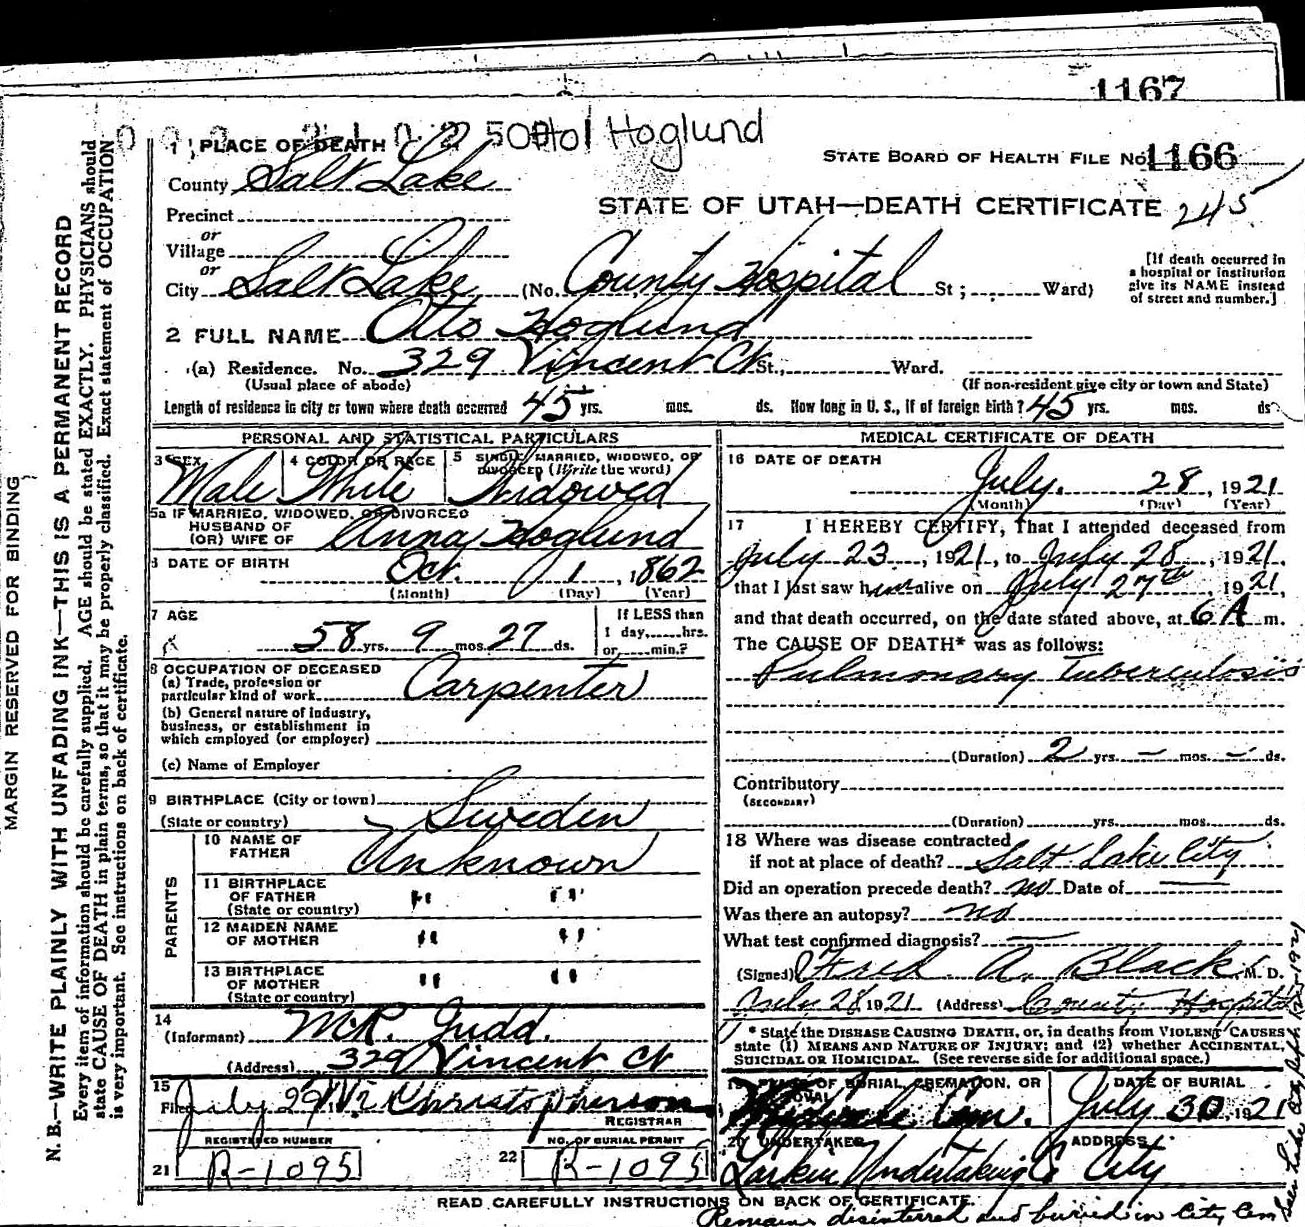 1167
Otto Hoglund
STATE BOARD OF HEALTH FILE No. 1166
1 PLACE OF DEATH
County Salt Lake
STATE OF UTAH—DEATH CERTIFICATE 245
Precinct
or
Village
or
City Salt Lake (No. County Hospital St; Ward)
[If death occurred in
a hospital or institution
give its NAME instead
of street and number.]
2 FULL NAME Otto Hoglund
(a) Residence. No. 329 Vincent Ct St., Ward.
(Usual place of abode) (If non-resident give city or town and State)
Length of residence in city or town where death occurred 45 yrs. mos. ds. How long in U. S., if of foreign birth? 45 yrs. mos. ds
PERSONAL AND STATISTICAL PARTICULARS
3 SEX Male
4 COLOR OR RACE White
5 SINGLE, MARRIED, WIDOWED, OR
DIVORCED (Write the word)
Widowed
5a IF MARRIED, WIDOWED, OR DIVORCED
HUSBAND OF
(OR) WIFE OF Anna Hoglund
6 DATE OF BIRTH Oct. 1, 1862
(Month) (Day) (Year)
7 AGE 58 yrs. 9 mos. 27 ds.
If LESS than
1 day,......hrs.
or......min.?
8 OCCUPATION OF DECEASED
(a) Trade, profession or
particular kind of work Carpenter
(b) General nature of industry,
business, or establishment in
which employed (or employer)
(c) Name of Employer
9 BIRTHPLACE (City or town)
(State or country) Sweden
PARENTS
10 NAME OF
FATHER Unknown
11 BIRTHPLACE
OF FATHER
(State or country) " "
12 MAIDEN NAME
OF MOTHER " "
13 BIRTHPLACE
OF MOTHER
(State or country) " "
14
(Informant) Mr. Judd.
(Address) 329 Vincent Ct
15
Filed July 29 Christopherson
REGISTRAR
REGISTERED NUMBER
21 R-1095
NO. OF BURIAL PERMIT
22 R-1095
MEDICAL CERTIFICATE OF DEATH
16 DATE OF DEATH
July. 28, 1921
(Month) (Day) (Year)
17 I HEREBY CERTIFY, That I attended deceased from
July 23, 1921, to July 28, 1921,
that I last saw him alive on July 27th, 1921,
and that death occurred, on the date stated above, at 6 A m.
The CAUSE OF DEATH* was as follows:
Pulmonary Tuberculosis
(Duration) 2 yrs. — mos. — ds.
Contributory
(SECONDARY)
(Duration) yrs. mos. ds.
18 Where was disease contracted
if not at place of death? Salt Lake City
Did an operation precede death? no Date of —
Was there an autopsy? no
What test confirmed diagnosis? —
(Signed) Fred A. Black M. D.
July 28, 1921 (Address) County Hospital
* State the DISEASE CAUSING DEATH, or, in deaths from VIOLENT CAUSES
state (1) MEANS AND NATURE OF INJURY; and (2) whether ACCIDENTAL,
SUICIDAL OR HOMICIDAL. (See reverse side for additional space.)
19 PLACE OF BURIAL, CREMATION, OR
REMOVAL
Midvale Cem.
DATE OF BURIAL
July 30, 1921
20 UNDERTAKER
Larkin Undertaking Co
ADDRESS
City
READ CAREFULLY INSTRUCTIONS ON BACK OF CERTIFICATE.
Remains disinterred and buried in City Cem
MARGIN RESERVED FOR BINDING
N. B.—WRITE PLAINLY WITH UNFADING INK—THIS IS A PERMANENT RECORD
Every item of information should be carefully supplied. AGE should be stated EXACTLY. PHYSICIANS should
state CAUSE OF DEATH in plain terms, so that it may be properly classified. Exact statement of OCCUPATION
is very important. See instructions on back of certificate.